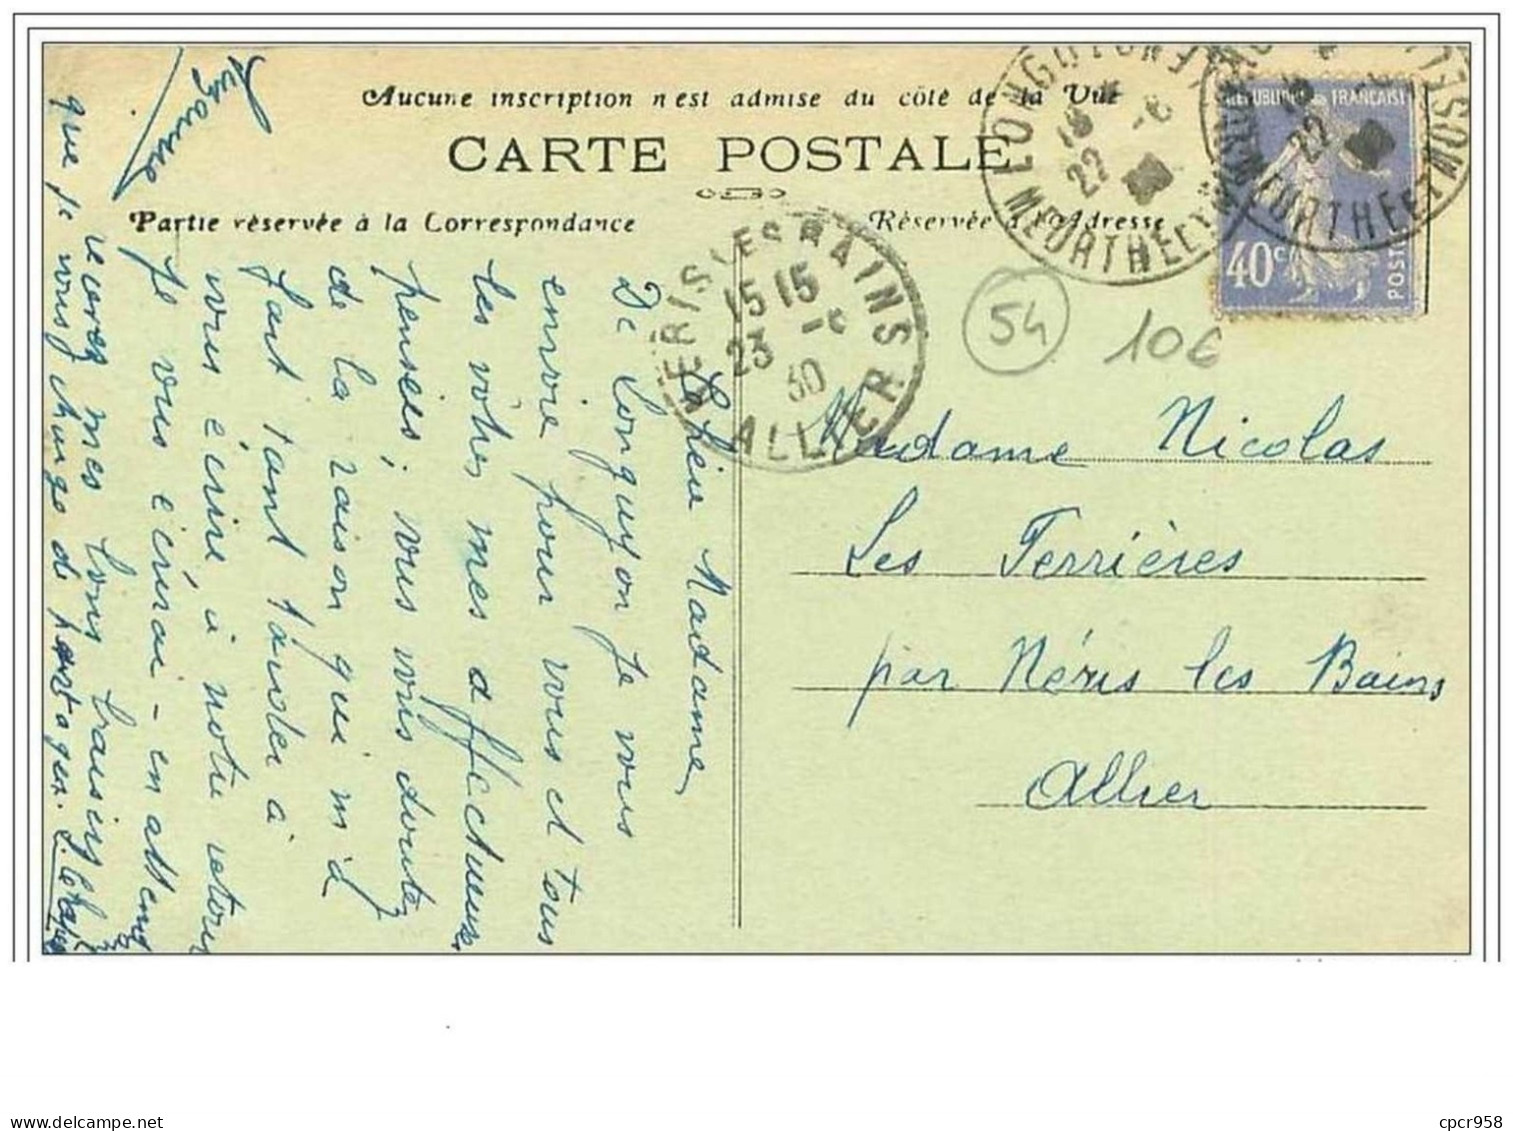 Aucune inscription n'est admise du côté de la Vue
CARTE POSTALE
Partie réservée à la Correspondance
Réservée à l'Adresse
LONGUYON
MEURTHE ET M
18
22 -6
LONGUYON
MEURTHE ET MOSELLE
18
22
REPUBLIQUE FRANÇAISE
40c
POSTES
NERIS LES BAINS
15 15
23 -6
30
ALLIER
54
10€
Chère Madame
De Longuyon je vous
envoie pour vous et tous
les vôtres mes affectueuses
pensées, vous vous doutez
de la raison qui m'a
fait tant tarder à
vous écrire, à notre retour
Je vous écrirai - en attend
recevez mes bons baisers
que je vous charge de partager.
Suzanne
Madame Nicolas
Les Ferrières
par Néris les Bains
Allier
cpcr958